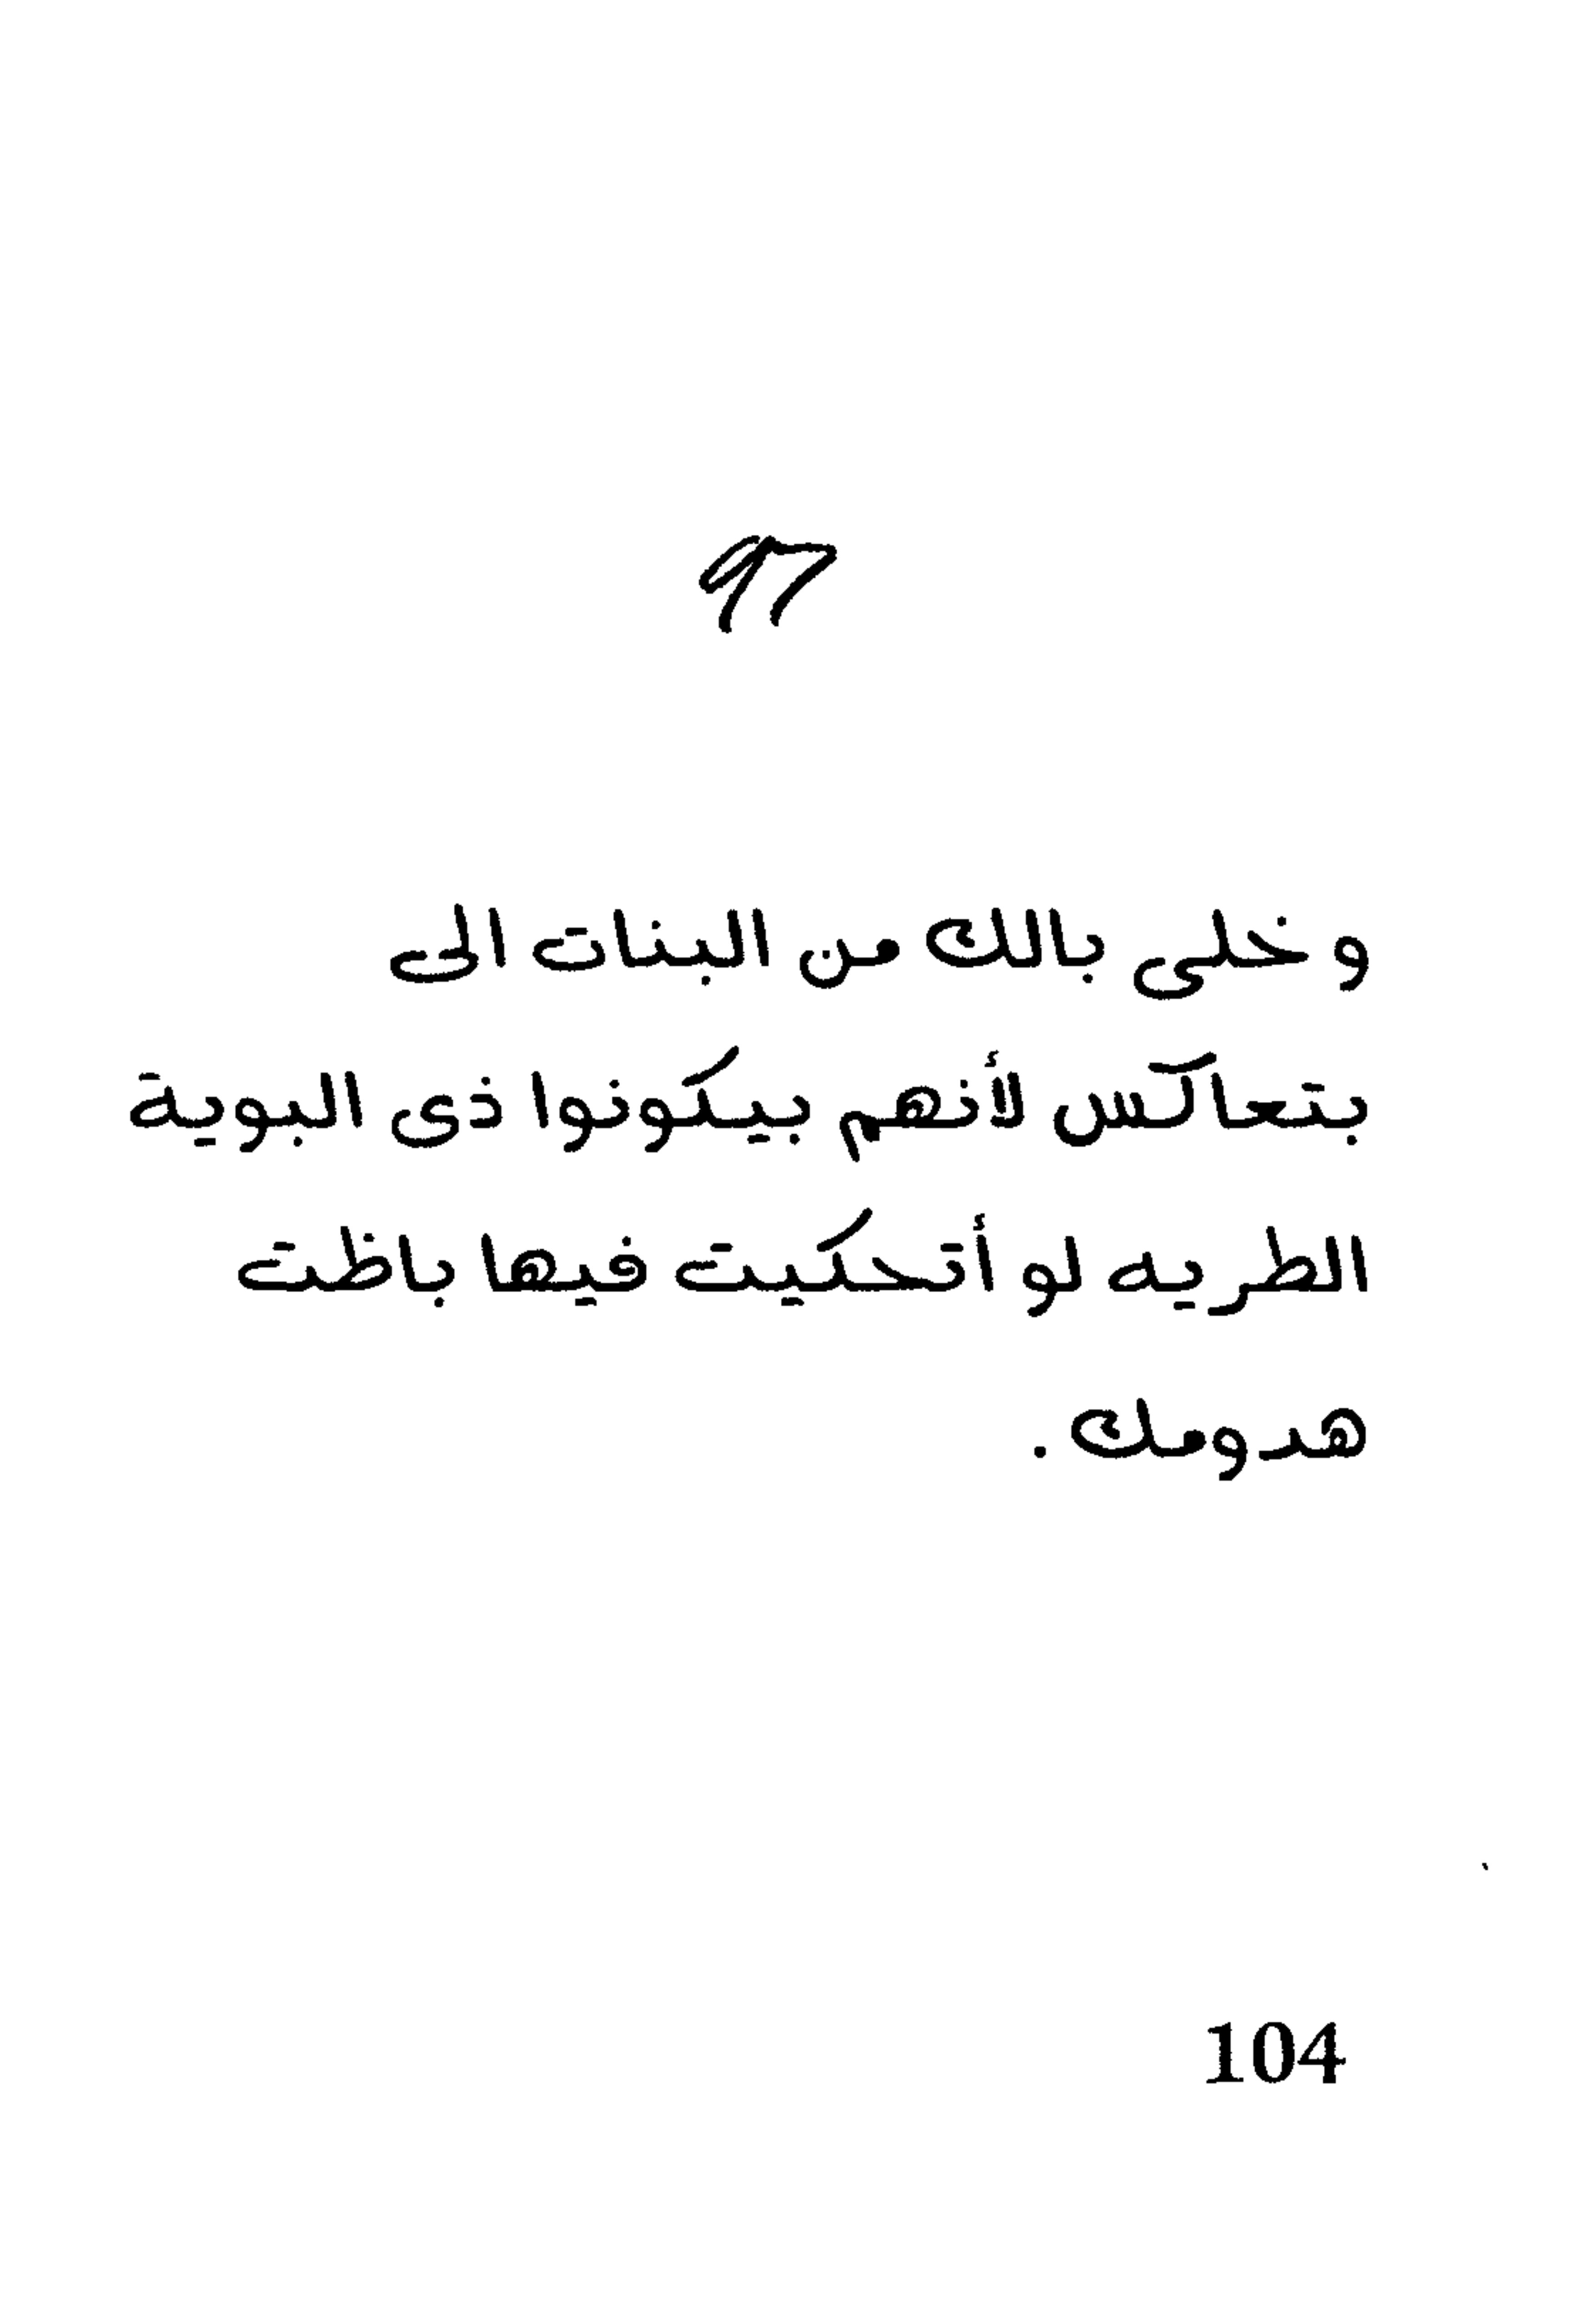 97
وخلى بالك من البنات الى
بتعاكس لأنهم بيكونوا ذى البوية
الطريه لو أتحكيت فيها باظت
هدومك .
104